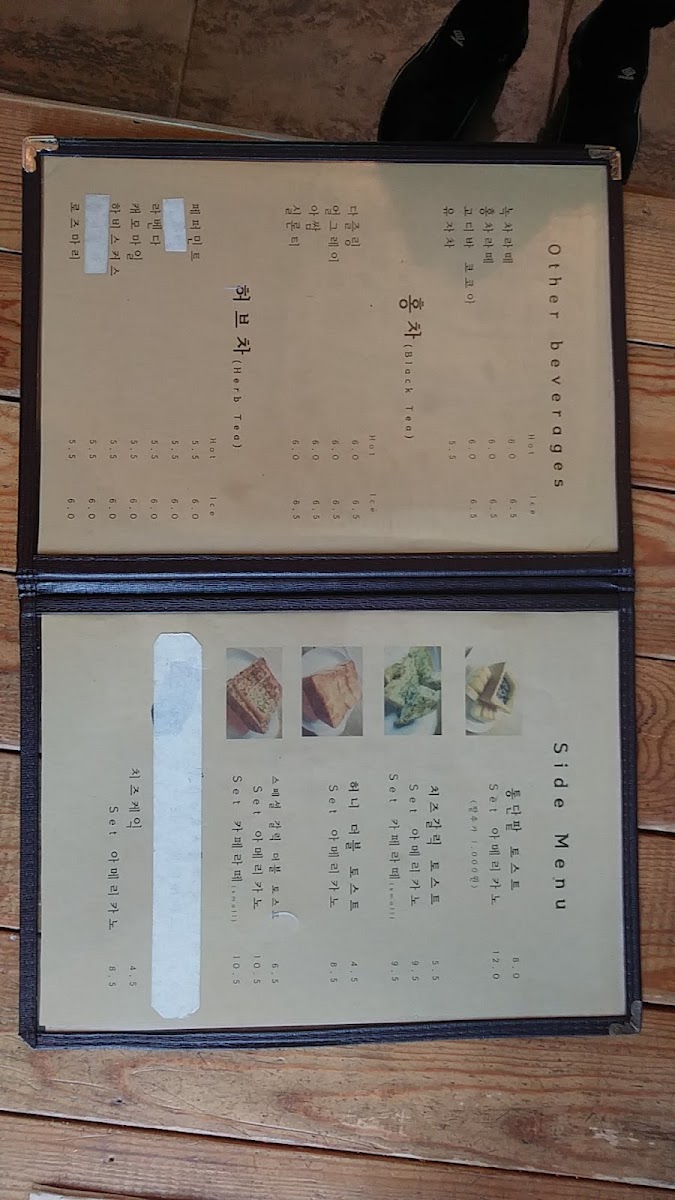 Other beverages
Hot Ice
녹차라떼 6.0 6.5
홍차라떼 6.0 6.5
고디바 코코아 6.0 6.5
유자차 5.5
홍차(Black Tea)
Hot Ice
다즐링 6.0 6.5
얼그레이 6.0 6.5
아쌈 6.0 6.5
실론티 6.0 6.5
허브차(Herb Tea)
Hot Ice
페퍼민트 5.5 6.0
5.5 6.0
라벤다 5.5 6.0
캐모마일 5.5 6.0
하비스커스 5.5 6.0
5.5 6.0
로즈마리 5.5 6.0
Side Menu
통단팥 토스트 8.0
Set 아메리카노 12.0
(팥추가 1,000원)
치즈갈릭 토스트 5.5
Set 아메리카노 9.5
Set 카페라떼(small) 9.5
허니 더블 토스트 4.5
Set 아메리카노 8.5
스페셜 갈릭 더블 토스트 6.5
Set 아메리카노 10.5
Set 카페라떼(small) 10.5
치즈케익 4.5
Set 아메리카노 8.5